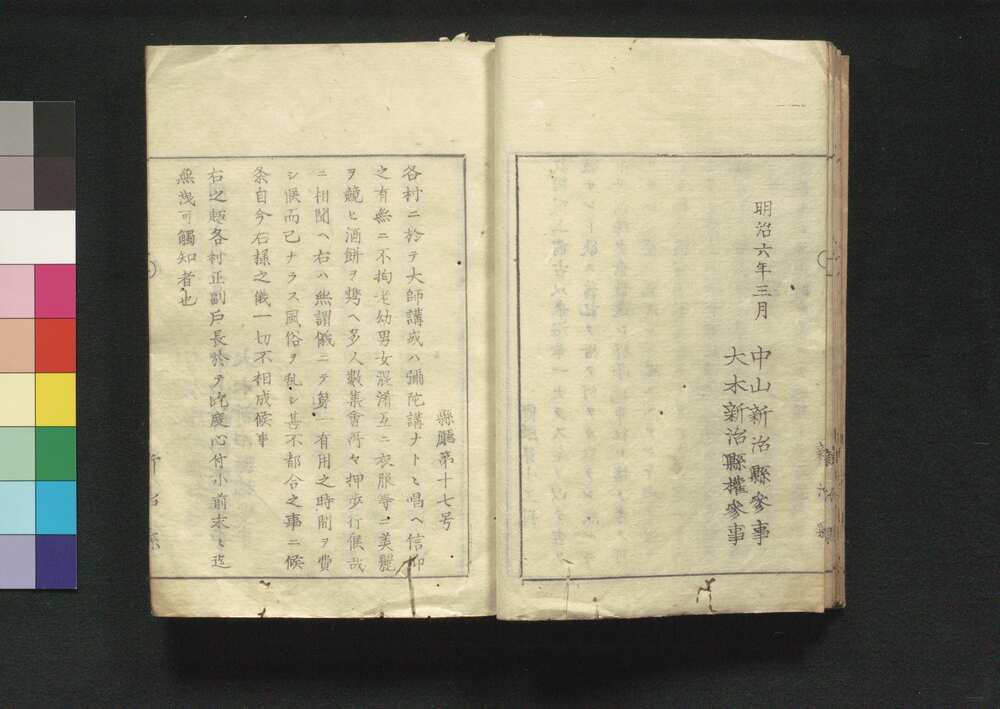 明治六年三月
中山新治縣參事
大木新治縣權參事
縣廳第十七号
各村ニ於テ大師講或ハ彌陀講ナトヽ唱ヘ信仰
之有無ニ不拘老幼男女混淆互ニ衣服等ニ美麗
ヲ競ヒ酒餅ヲ携ヘ多人數集會所々押歩行候哉
ニ相聞ヘ右ハ無謂儀ニテ第一有用之時間ヲ費
シ候而己ナラス風俗ヲ乱シ甚不都合之事ニ候
条自今右樣之儀一切不相成候事
右之趣各村正副戸長於ヲ此度心付小前末々迄
無洩可觸知者也